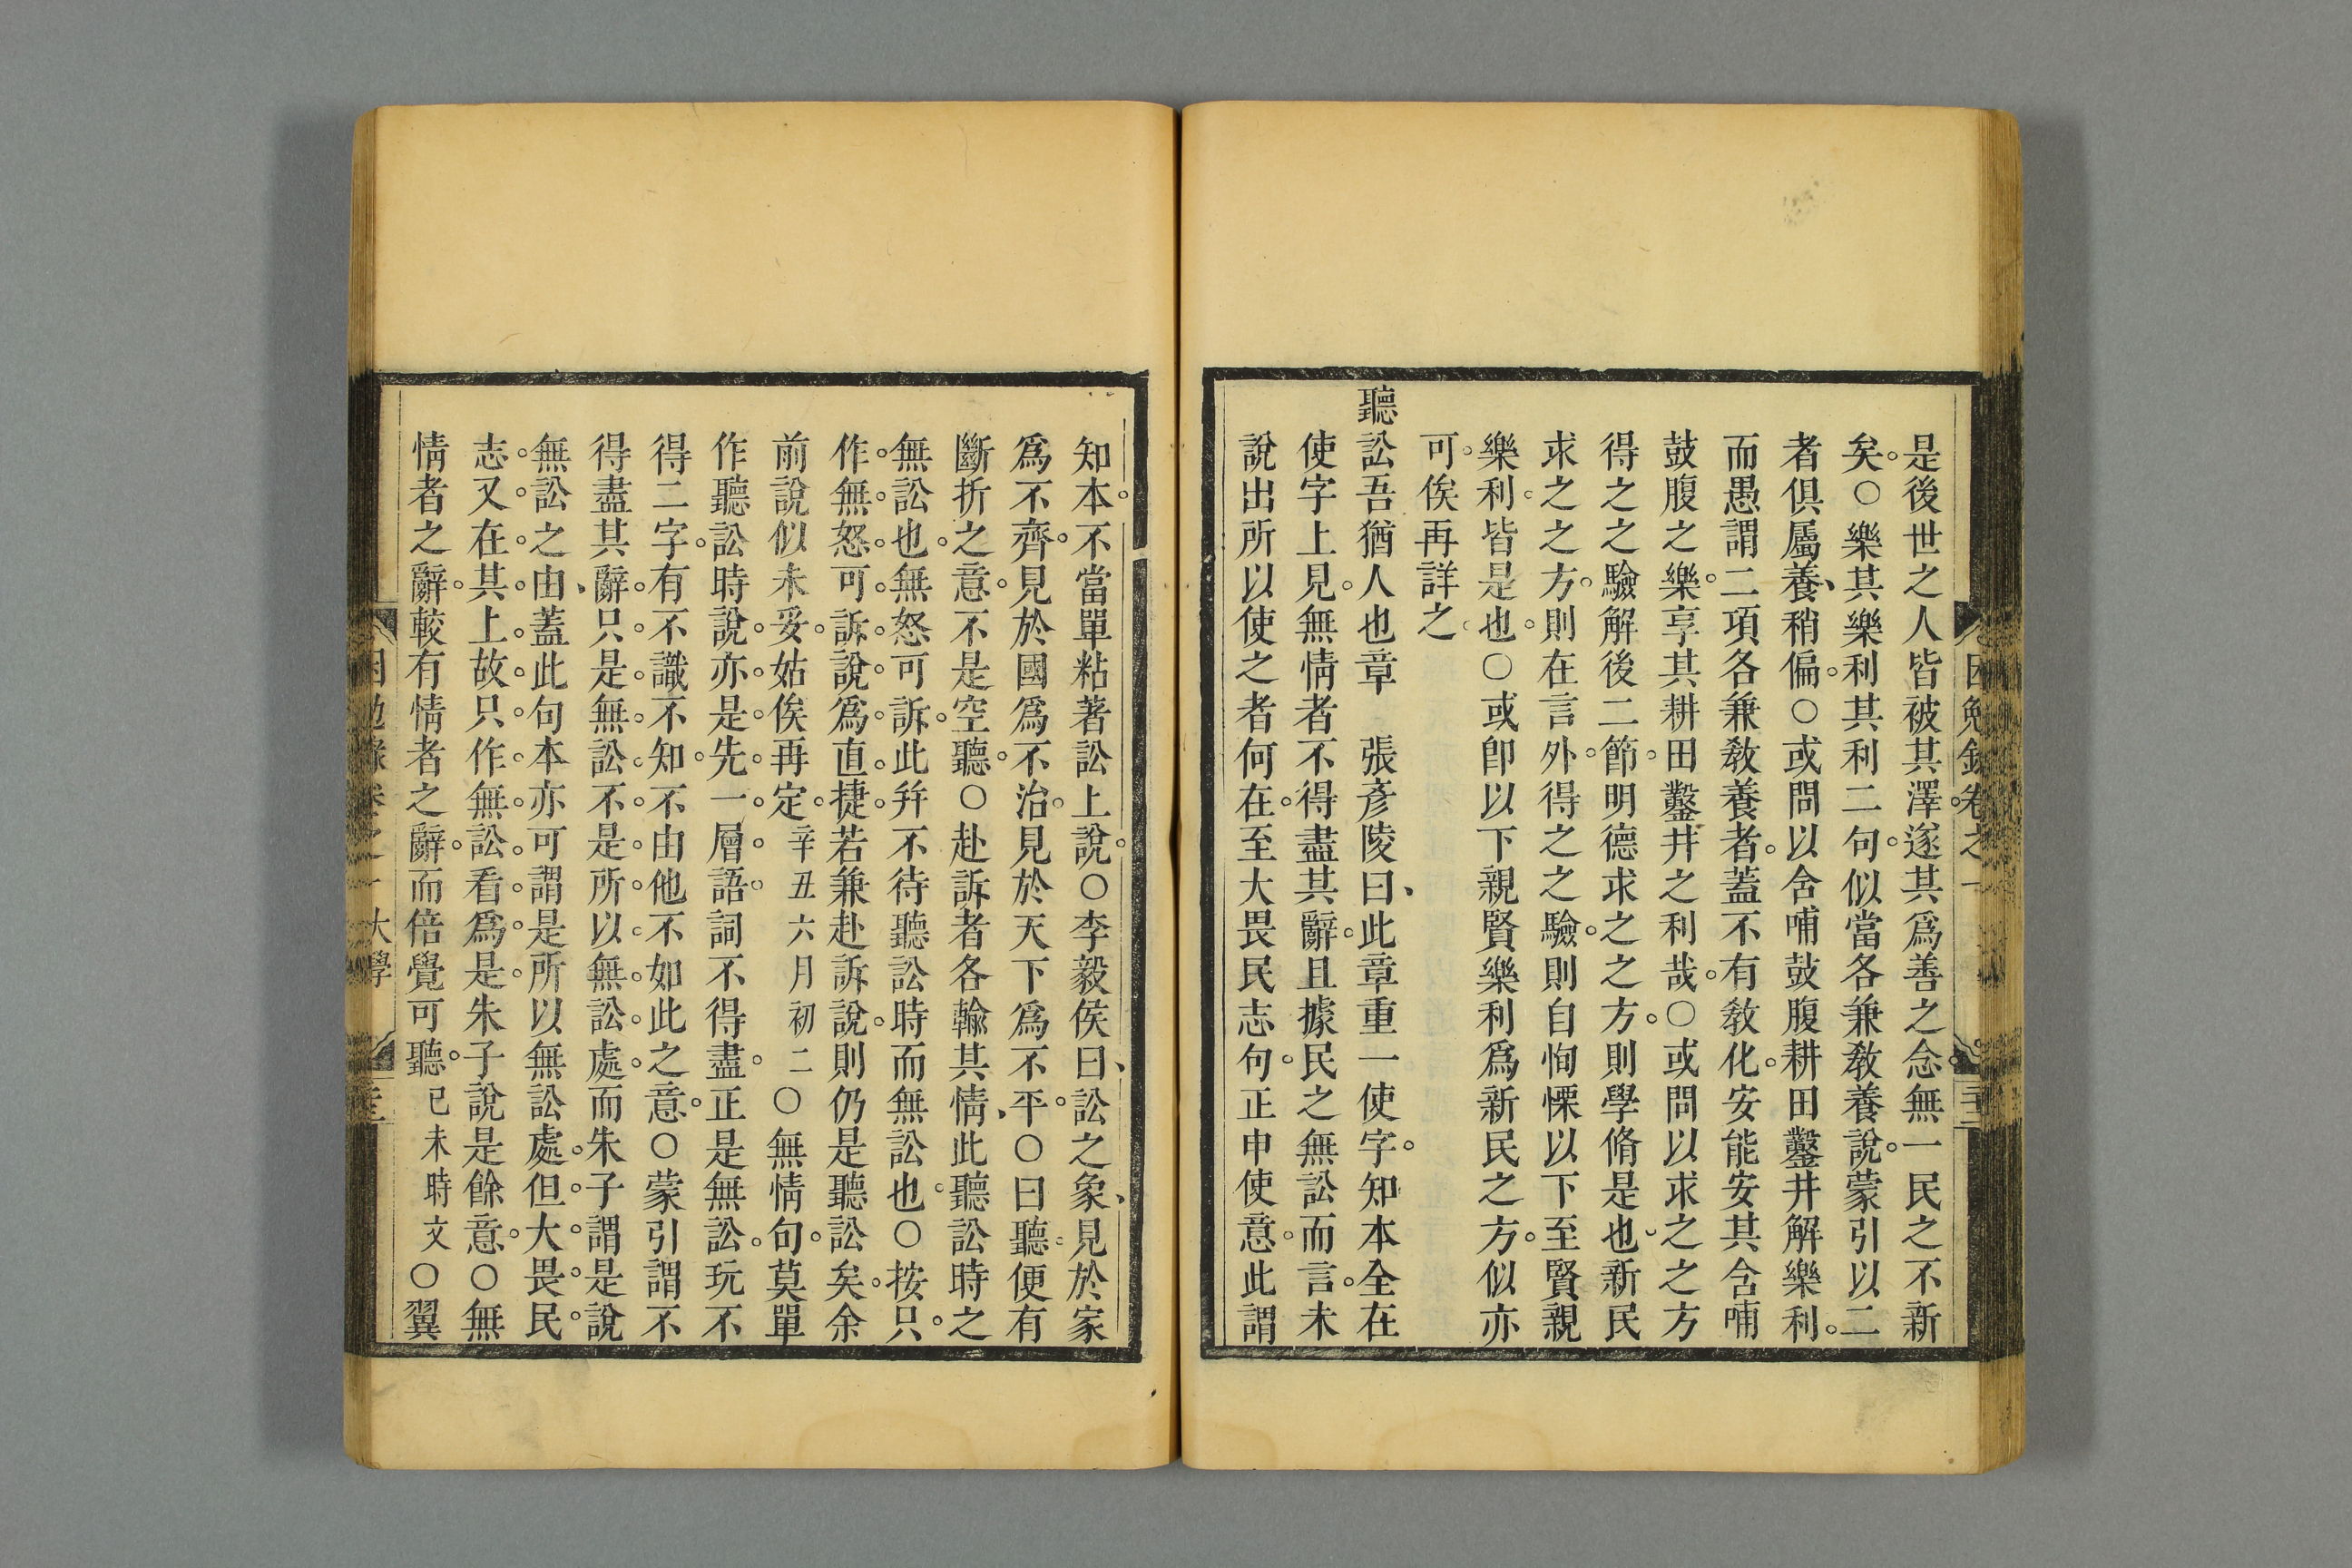 是後世之人皆被其澤。遂其爲善之念。無一民之不新
矣。○樂其樂利其利二句。似當各兼敎養說。蒙引以二
者俱屬養、稍偏。○或問以含哺鼓腹耕田鑿井解樂利。
而愚謂二項各兼敎養者。蓋不有敎化。安能安其含哺
鼓腹之樂。享其耕田鑿井之利哉。○或問以求之之方
得之之驗解後二節。明德求之之方。則學脩是也。新民
求之之方。則在言外。得之之驗。則自恂慄以下至賢親
樂利。皆是也。○或卽以下親賢樂利爲新民之方。似亦
可。俟再詳之。
聽訟吾猶人也章 張彥陵曰、此章重一使字。知本全在
使字上見。無情者不得盡其辭。且據民之無訟而言。未
說出所以使之者何在。至大畏民志句。正申使意。此謂
知本。不當單粘著訟上說。○李毅侯曰、訟之象、見於家
爲不齊。見於國爲不治。見於天下爲不平。○曰聽。便有
斷折之意。不是空聽。○赴訴者各輸其情、此聽訟時之
無訟也。無怒可訴。此幷不待聽訟時而無訟也。○按只。
作。無。怒。可。訴。說。爲。直。捷。若兼赴訴說。則仍是聽訟矣。余
前說似未妥。姑俟再定。辛丑六月初二○無情句。莫單
作聽訟時說。亦是先一層語。詞不得盡。正是無訟。玩不
得二字。有不識不知。不由他不如此之意。○蒙引謂不
得盡其辭。只是無訟。不是所以無訟處。而朱子謂是說
無訟之由、蓋此句本亦可謂是所以無訟處。但大畏民
志。又在其上。故只作無訟看爲是。朱子說是餘意。○無
情者之辭。較有情者之辭。而倍覺可聽。已未時文○翼
困勉錄卷之一
困勉錄卷之一 大學